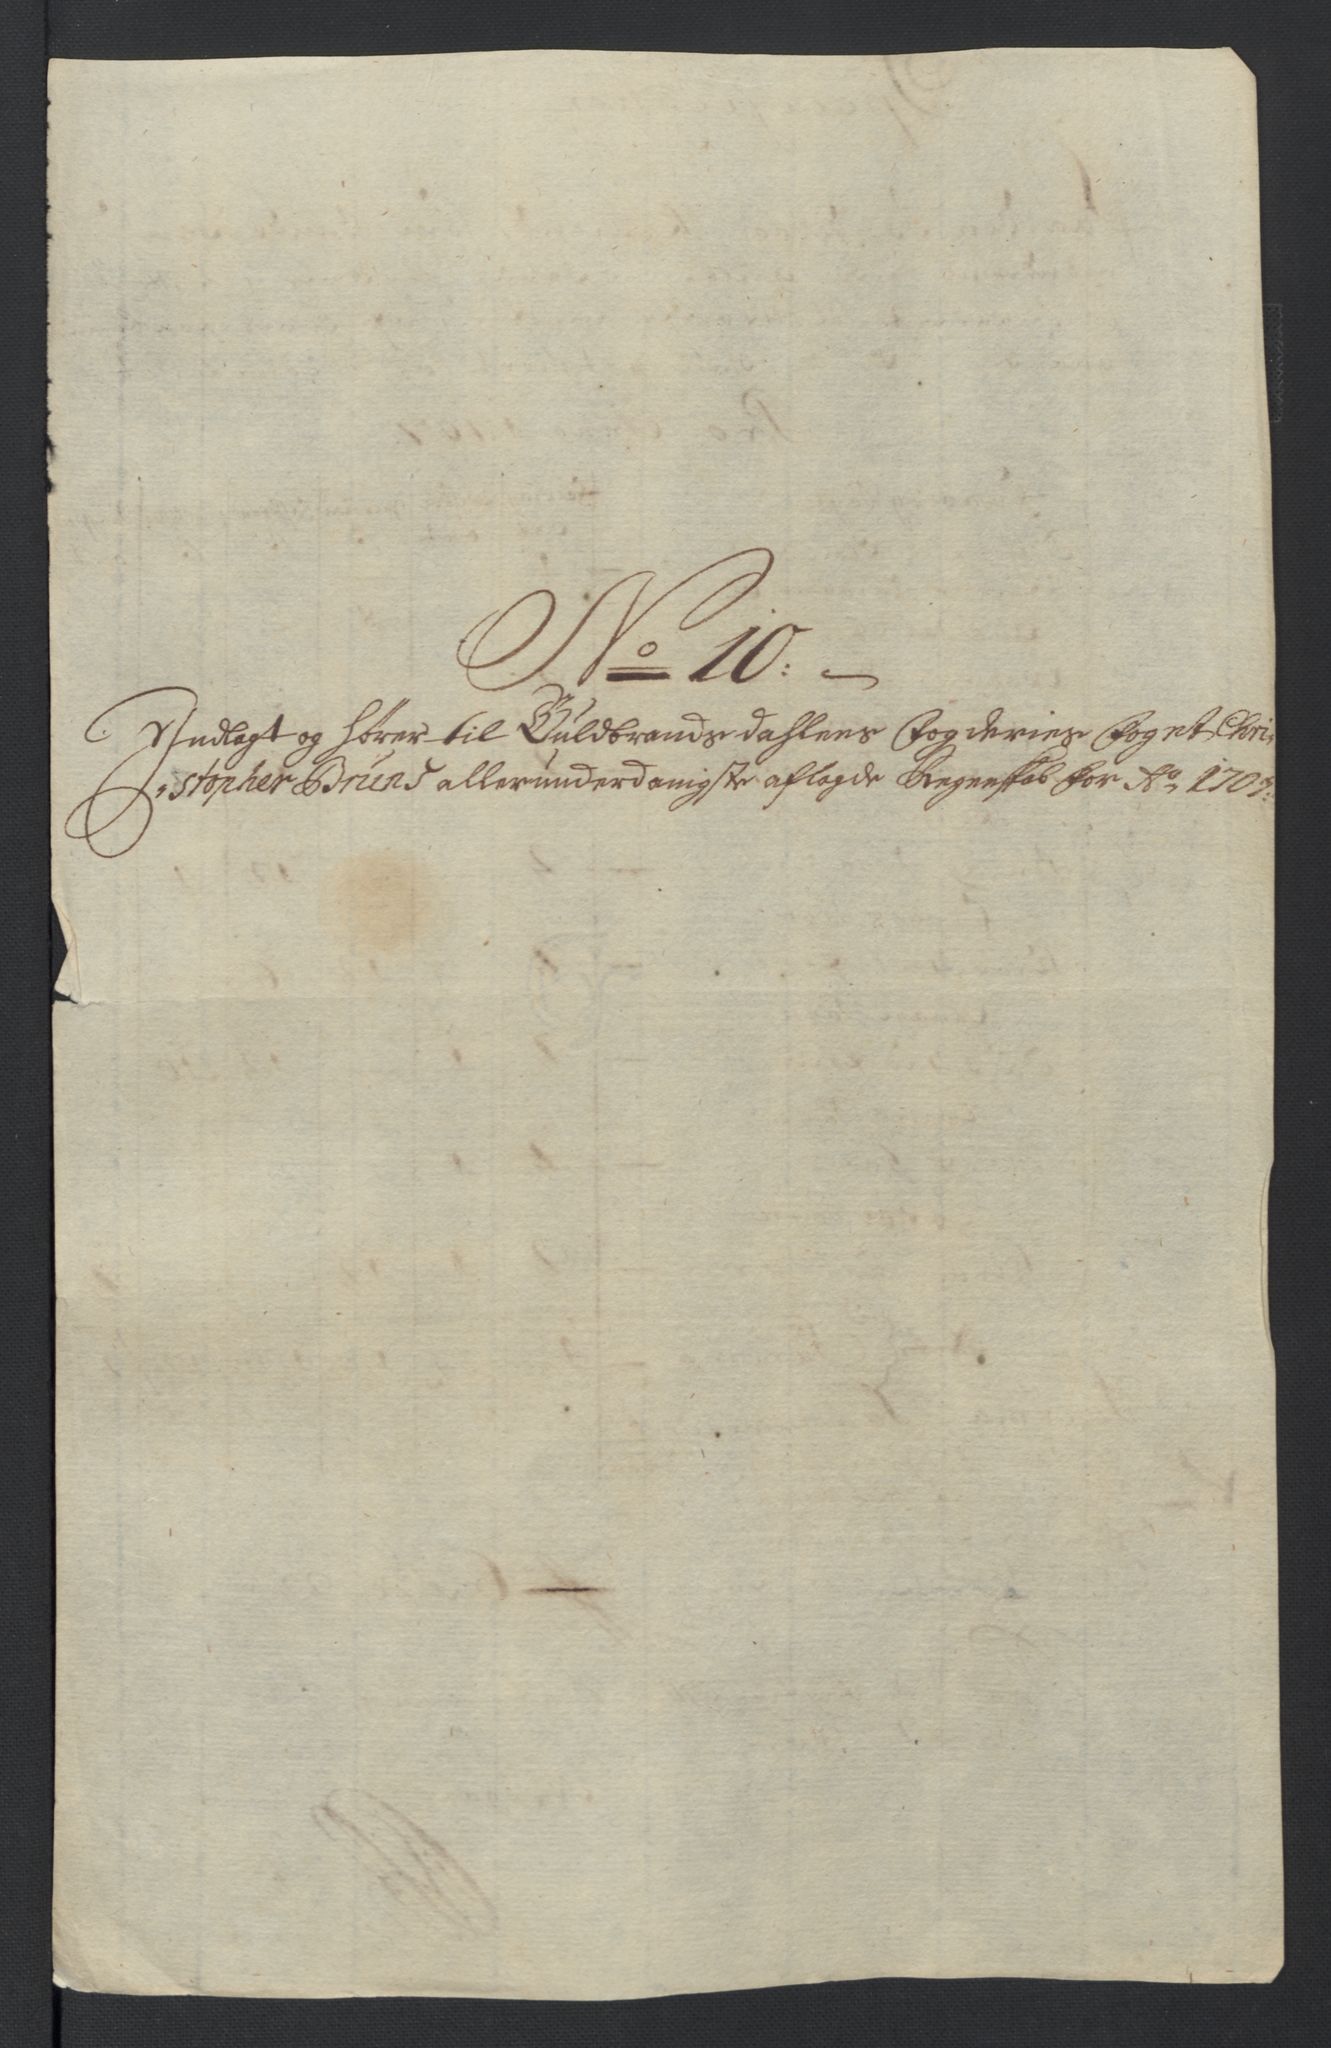 No 10:
Indlagt og hörer til Guldbrandsdahlens Fogderies Foget Chri-
stopher Bruns allerunderdanigste aflagde Regenskab for Ao 1707: